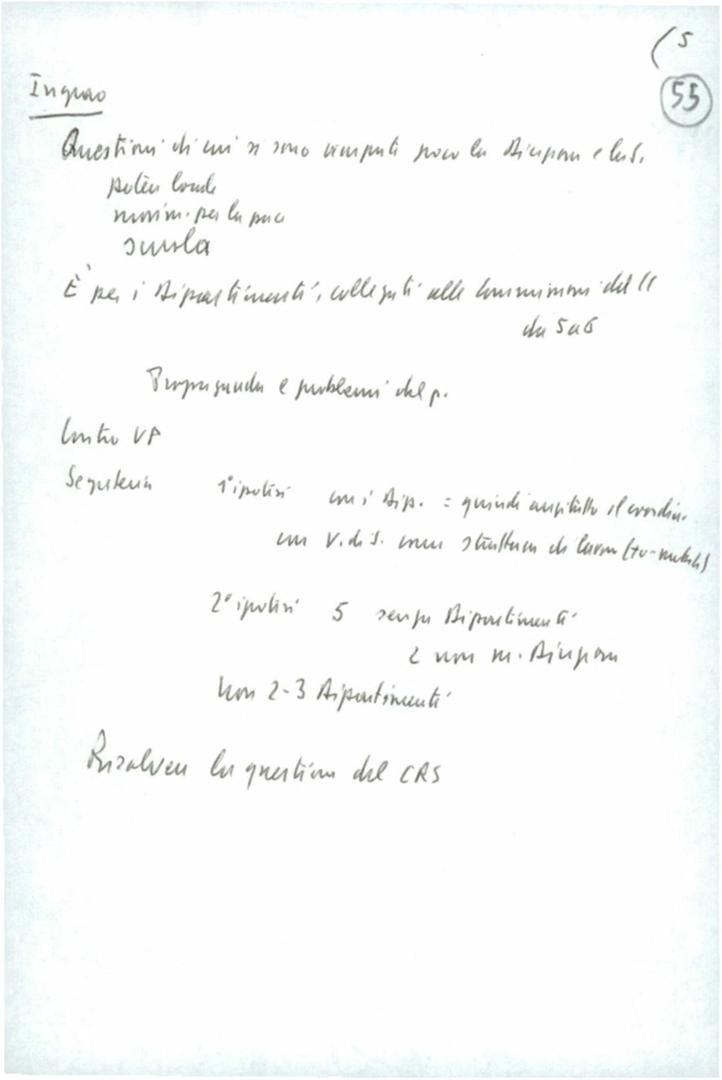 (5
55
Ingrao
Questioni di cui si sono occupati poco la Direzione e la S.
potere locale
movim. per la pace
scuola
È per i Dipartimenti, collegati alle commissioni del CC
da 5 a 6
Propaganda e problemi del p.
Contro VP
Segreteria 1ª ipotesi con i Dip. = quindi anzitutto il coordin.
con V. di S. come struttura di lavoro
2ª ipotesi 5 senza Dipartimenti
2 non m. Direzione
Non 2-3 Dipartimenti
Risolvere la questione del CRS